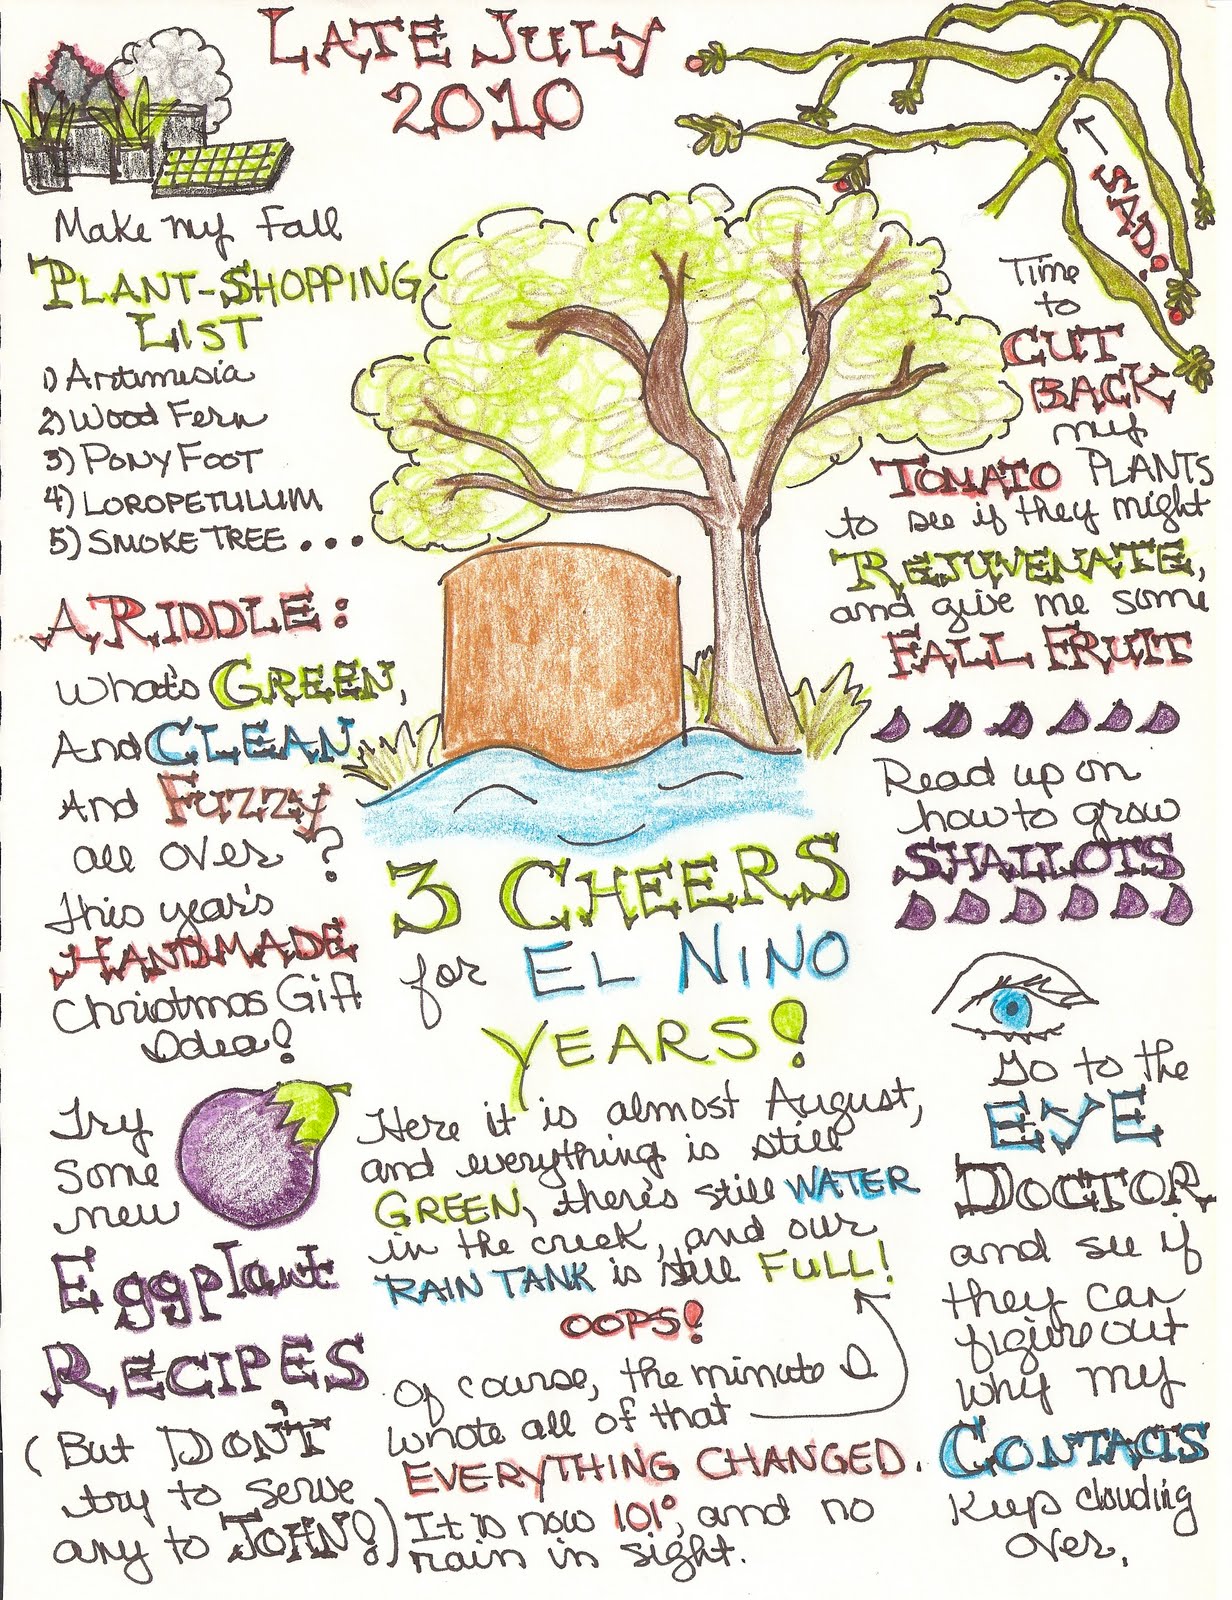 LATE JULY
2010
Make my Fall
PLANT-SHOPPING
LIST
1) Artimesia
2) Wood Fern
3) PONY FOOT
4) LOROPETULUM
5) SMOKE TREE...
A RIDDLE:
What's GREEN,
And CLEAN,
And FUZZY
all over?
this year's
HANDMADE
Christmas Gift
Idea!
Try
some
new
Eggplant
RECIPES
(But DON'T
try to serve
any to JOHN!)
3 CHEERS
for EL NINO
YEARS!
Here it is almost August,
and everything is still
GREEN, there's still WATER
in the creek, and our
RAIN TANK is still FULL!
OOPS!
Of course, the minute I
wrote all of that
EVERYTHING CHANGED.
It is now 101°, and no
rain in sight.
SAD!
Time
to
CUT
BACK
my
TOMATO PLANTS
to see if they might
REJUVENATE,
and give me some
FALL FRUIT
Read up on
how to grow
SHALLOTS
Go to the
EYE
DOCTOR
and see if
they can
figure out
why my
CONTACTS
Keep clouding
over.